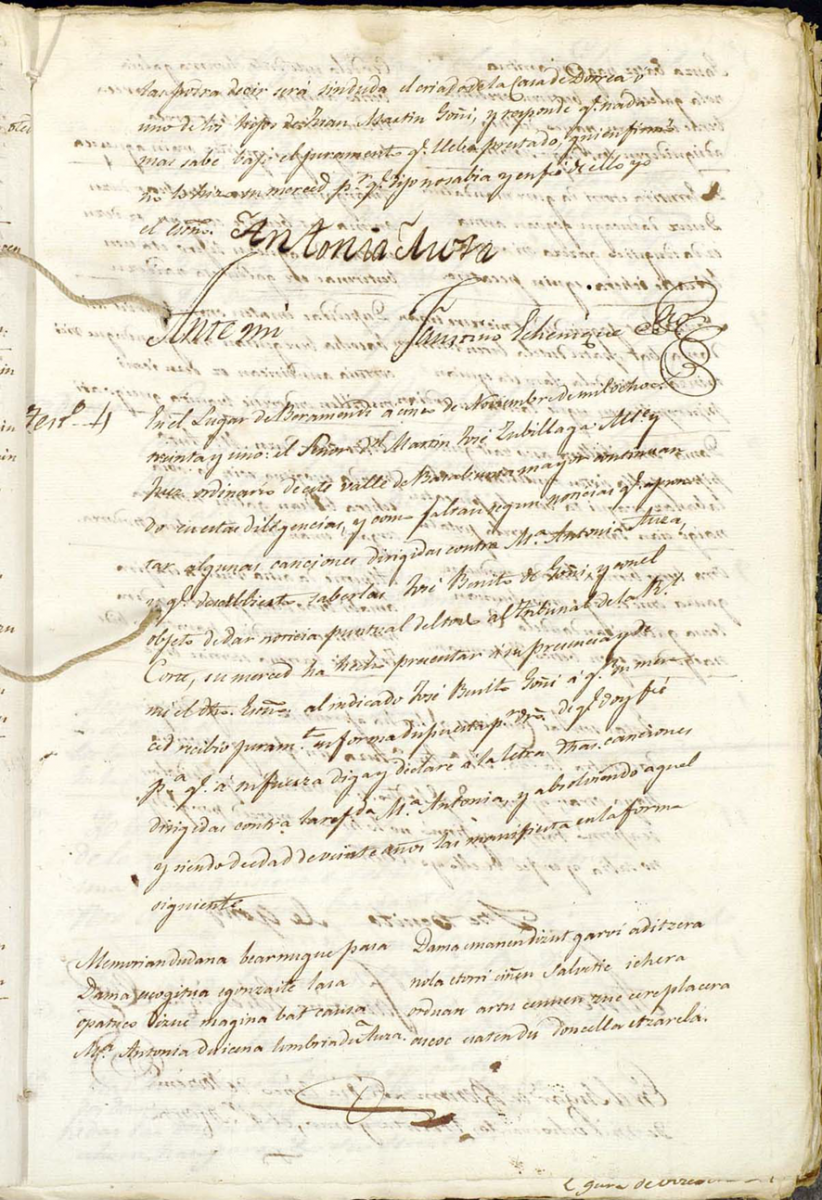 las podra decir será sin duda el criado de la Casa de Dorrea o
uno de los hijos de Juan Martin Goñi, y responde q.e nada
mas sabe bajo el juramento q.e lleba prestado, que no firmó
no lo hizo su merced p.r q.e dijo no sabia y en fe de ello yo
el Esño.
Antonia Ylura
Ante mi Faustino Echenique Esno
Test.o 4
En el Lugar de Beramendi a once de Noviembre de mil ochoc.s
treinta y uno: el Señor D.n Martin José Zubillaga Alc.e y
Juez ordinario de este valle de Basaburua mayor continuan
do en estas diligencias, y como faltan segun noticias q.e apron
tar algunas canciones dirigidas contra M.a Antonia Ylura,
y q.e descubierto saberlas José Benito de Goñi, y con el
objeto de dar noticia puntual de todo al Tribunal de la R.l
Corte, su merced ha hecho presentar a su presencia y de
mi el dho. Esño al indicado José Benito Goñi á q.n su mer
ced recibio juram.to en forma dispuesta p.r dro. de q.e doy fé
p.a q.e á su fuerza diga y declare a la letra dhas. canciones
dirigidas contra la ref.da M.a Antonia, y absolviendo aquel
y siendo de edad de veinte años las manifiesta en la forma
siguiente
Memorian dudana bearnuque para
Dama escogitua egonzaite lasa
opatuco dizue magina bat causa
M.a Antonia du icena lumbria du Ylura.
Dama emanen dizut garvi aditzera
nola etorri ciñen Salvatic ichera
orduan artu cenuen zuc cere placera
euscoc esaten du doncella etzarela.